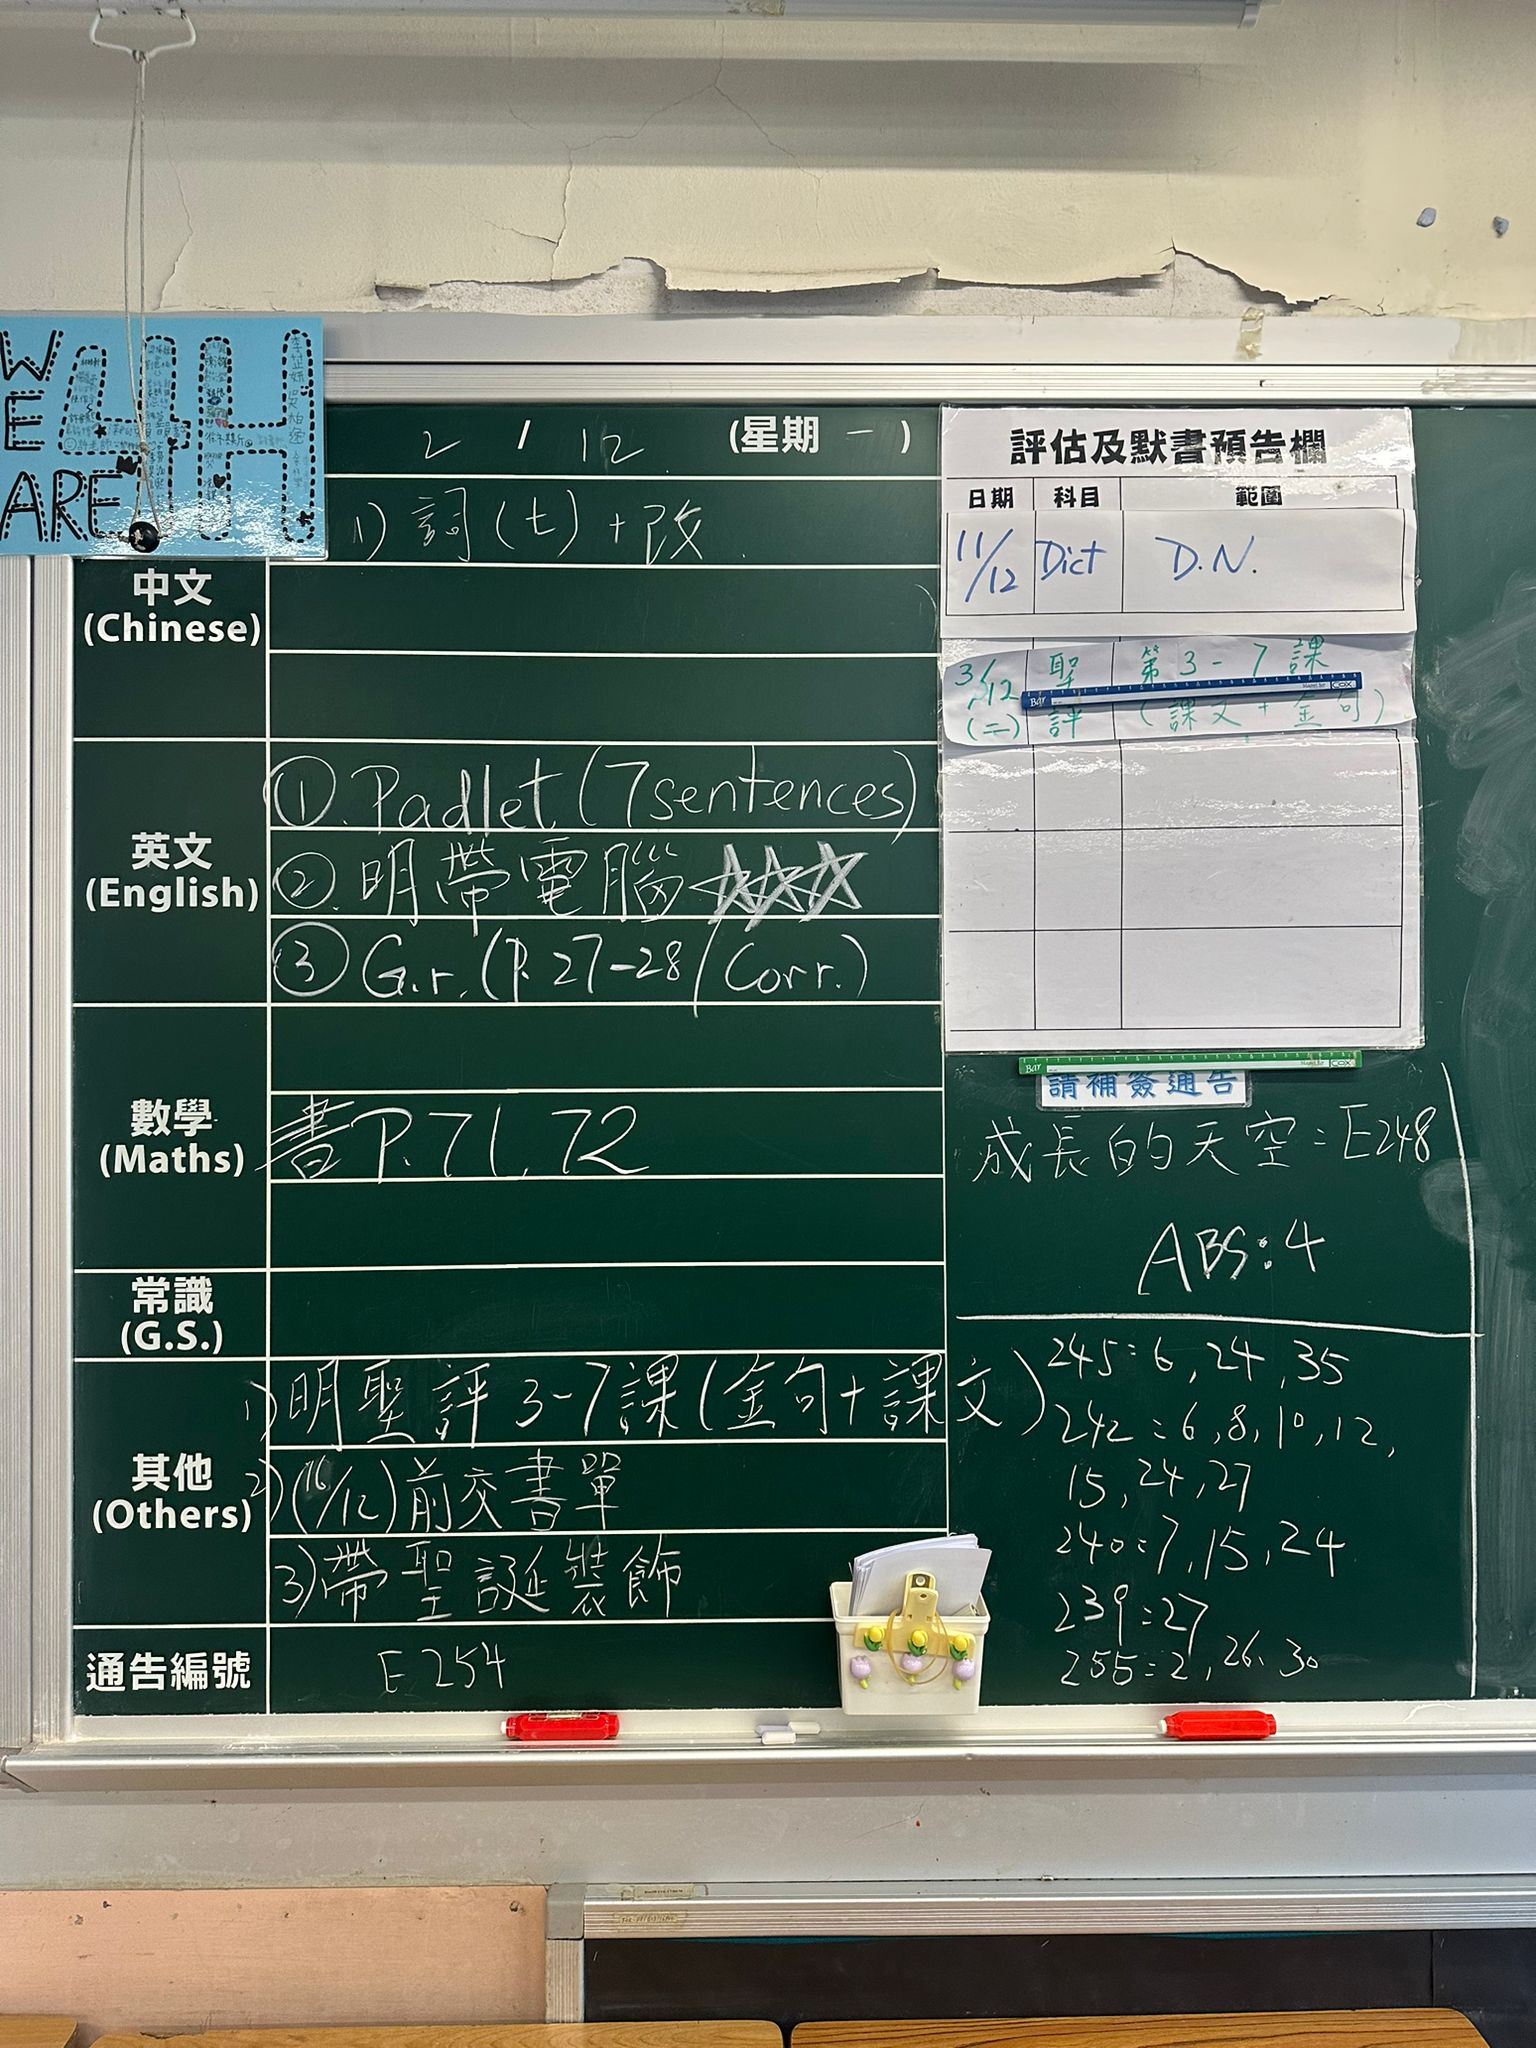 WE
ARE
4H
2 / 12 (星期 一 )
中文
(Chinese)
1) 詞(七)+改
英文
(English)
①. Padlet (7 sentences)
②. 明帶電腦
③ G.r. (P. 27-28 / Corr.)
數學
(Maths)
書P. 71, 72
常識
(G.S.)
其他
(Others)
1) 明聖評 3-7課(金句+課文)
2) (16/12)前交書單
3) 帶聖誕裝飾
通告編號
E 254
評估及默書預告欄
日期 科目 範圍
11/12 Dict D.N.
3/12 (二) 聖評 第3-7課
(課文+金句)
Bar COX
Bar COX
請補簽通告
成長的天空: E248
ABS: 4
245: 6, 24, 35
242: 6, 8, 10, 12,
15, 24, 27
240: 7, 15, 24
239: 27
255: 2, 26, 30